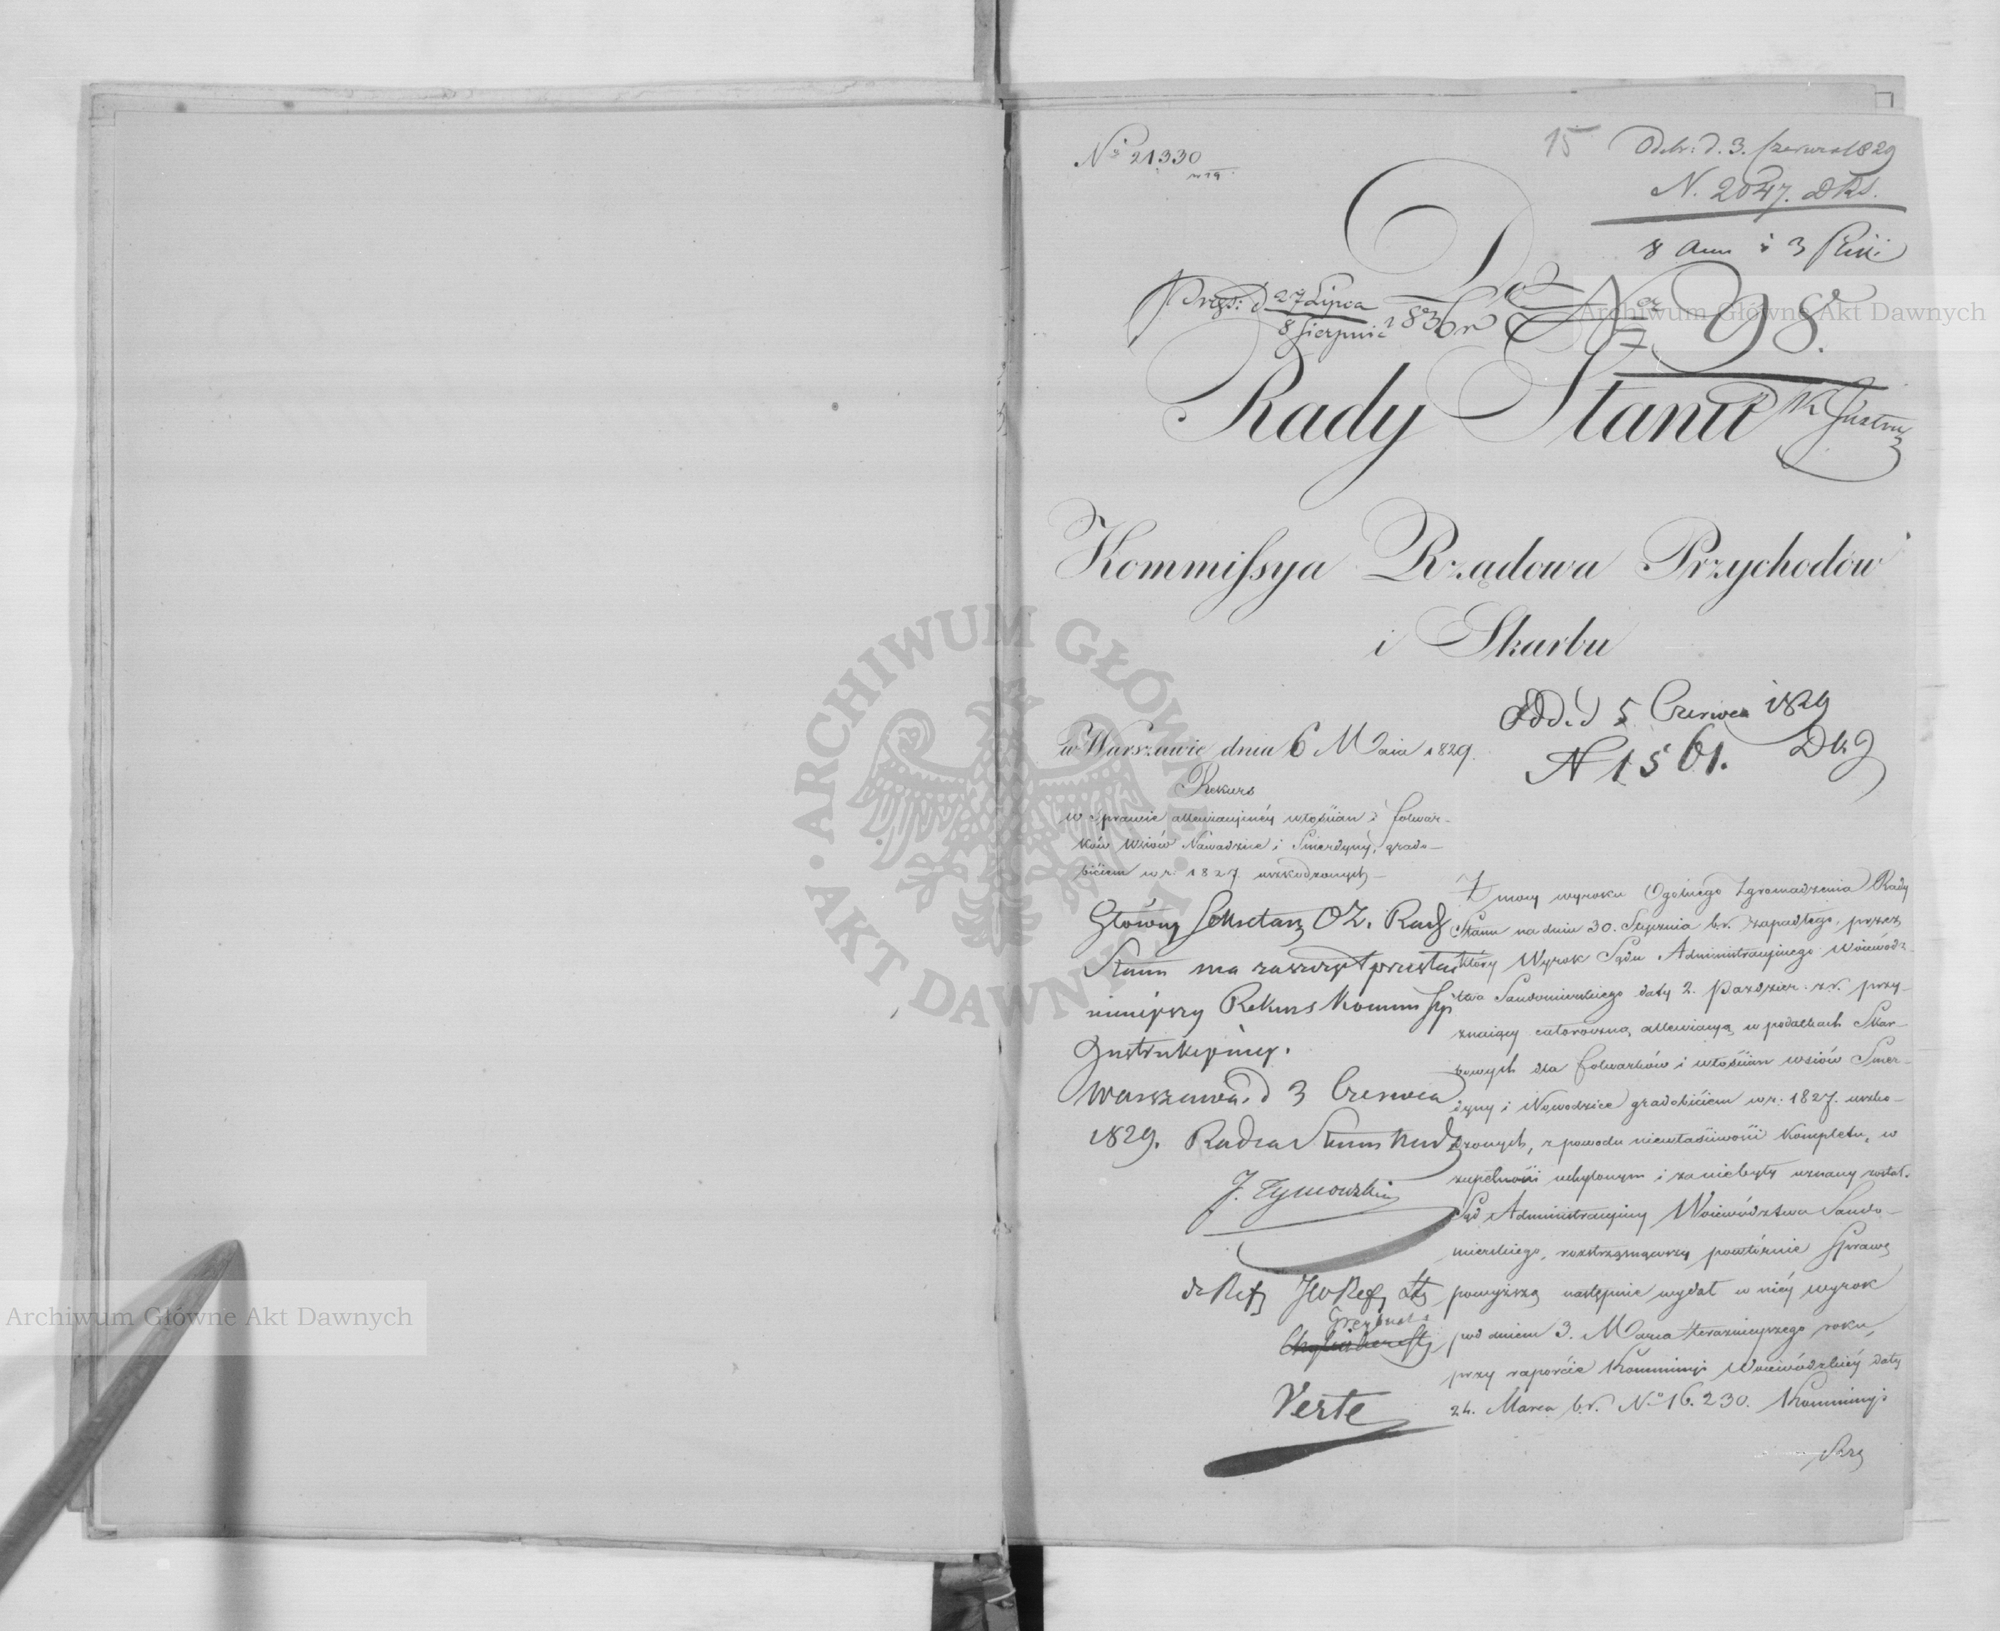 No 21330
15
Odebr: d. 3. Czerwca 1829
N. 2047. DRS.
8 Ann i 3
Do
Preżs: d 27 Lipca
8 Sierpnia 1836 r
N 98.
Rady Stanu
Kommissya Rządowa Przychodów
i Skarbu
Odd. d 5 Czerwca 1829
N 1561.
w Warszawie dnia 6 Maia 1829.
Rekurs
w Sprawie allewiacyjnéy włościan i folwar-
ków wsiów Nawodzice i Smerdyny, grado-
biciem w r: 1827 uszkodzonych
Główny Sekretarz O Z. Rady
Stanu ma zaszczyt przesłać
niniejszy Rekurs Kommissyi
Instrukcyiney.
Warszawa d 3 Czerwca
1829. Radca Stanu
J. Tymowski
do Ref
Verte
Z mocy wyroku Ogólnego Zgromadzenia Rady
Stanu na dniu 30. Stycznia b.r. zapadłego, przez
który Wyrok Sądu Administracyjnego Wojewódz-
twa Sandomierskiego daty 2. Paździer: z.r. przy-
znaiący całoroczną allewiacyą w podatkach Skar-
bowych dla folwarków i włościan wsiów Smer-
dyny i Nawodzice gradobiciem w r: 1827. uszko-
dzonych, z powodu niewłaściwości Kompletu, w
zupełności uchylonym i za niebyły uznany został.
Sąd Administracyjny Województwa Sando-
mierskiego, rozstrząsnąwszy powtórnie Sprawę
powyższą następnie wydał w niéy wyrok
pod dniem 3. Marca teraźniejszego roku,
przy raporcie Kommissyi Wojewódzkiéy daty
24. Marca b.r. No 16.230. Kommissyi
Rzą
Archiwum Główne Akt Dawnych
Archiwum Główne Akt Dawnych
ARCHIWUM GŁÓWNE AKT DAWNYCH